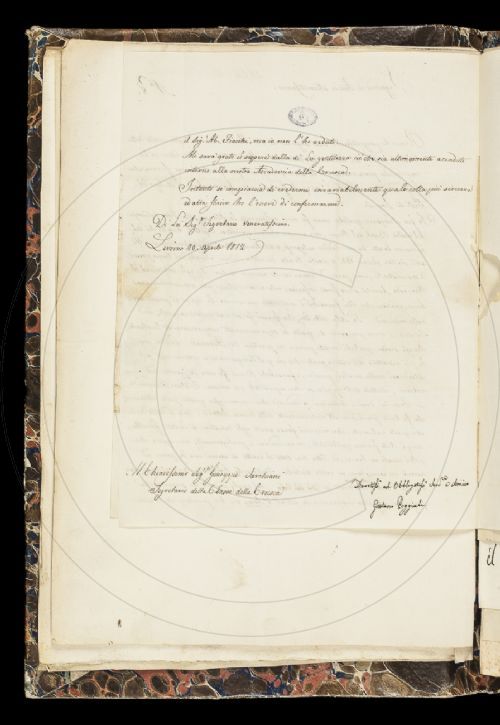 il Sig.r Ab. Fiacchi, ma io non l'ho veduto.
Mi sarà grato il sapere dalla di Lei gentilezza se sia ulteriormente accaduto
intorno alla nostra Accademia della Crusca.
Intanto si compiaccia di credermi invariabilmente quale colla più sincera
stima ho l'onore di confermarmi.
Di Lei Sig.r Segretario veneratissimo.
Livorno 20. Aprile 1812.
Al Chiarissimo Sig.r Giuseppe Sarchiani
Segretario della Classe della Crusca
Devotis.o ed Obbligatis.o Serv.e e Amico
Gaetano Poggiali
il